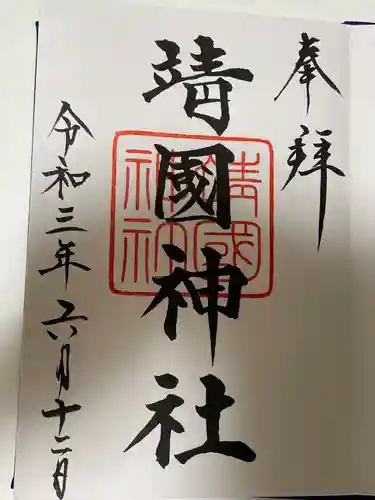 奉拝
靖國神社
靖國神社
令和三年六月十二日